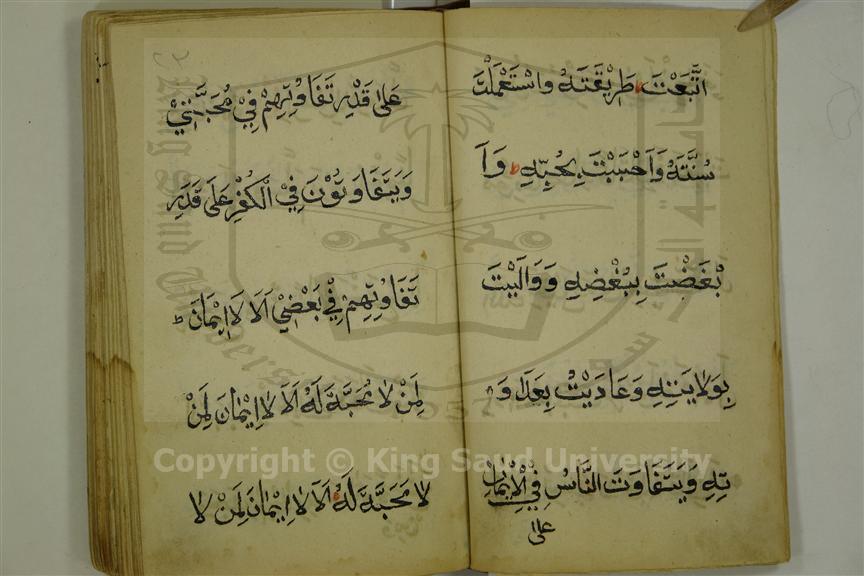 اتَّبَعْتَ طَرِيْقَتَهُ وَاسْتَعْمَلْتَ
سُنَّتَهُ وَاَحْبَبْتَ بِحُبِّهِ وَاَ
بْغَضْتَ بِبُغْضِهِ وَوَالَيْتَ
بِوِلَايَتِهِ وَعَادَيْتَ بِعَدَاوَ
تِهِ وَيَتَفَاوَتُ النَّاسُ فِي الْاِيْمَانِ
على
٢٣
عَلَى قَدْرِ تَفَاوُتِهِمْ فِيْ مُحَبَّتِيْ
وَيَتَفَاوَتُوْنَ فِي الْكُفْرِ عَلَى قَدْرِ
تَفَاوُتِهِمْ فِيْ بُغْضِيْ اَلَا لَا اِيْمَانَ
لِمَنْ لَا مُحَبَّةَ لَهُ اَلَا لَا اِيْمَانَ لِمَنْ
لَا مُحَبَّةَ لَهُ اَلَا لَا اِيْمَانَ لِمَنْ لَا
Copyright © King Saud University